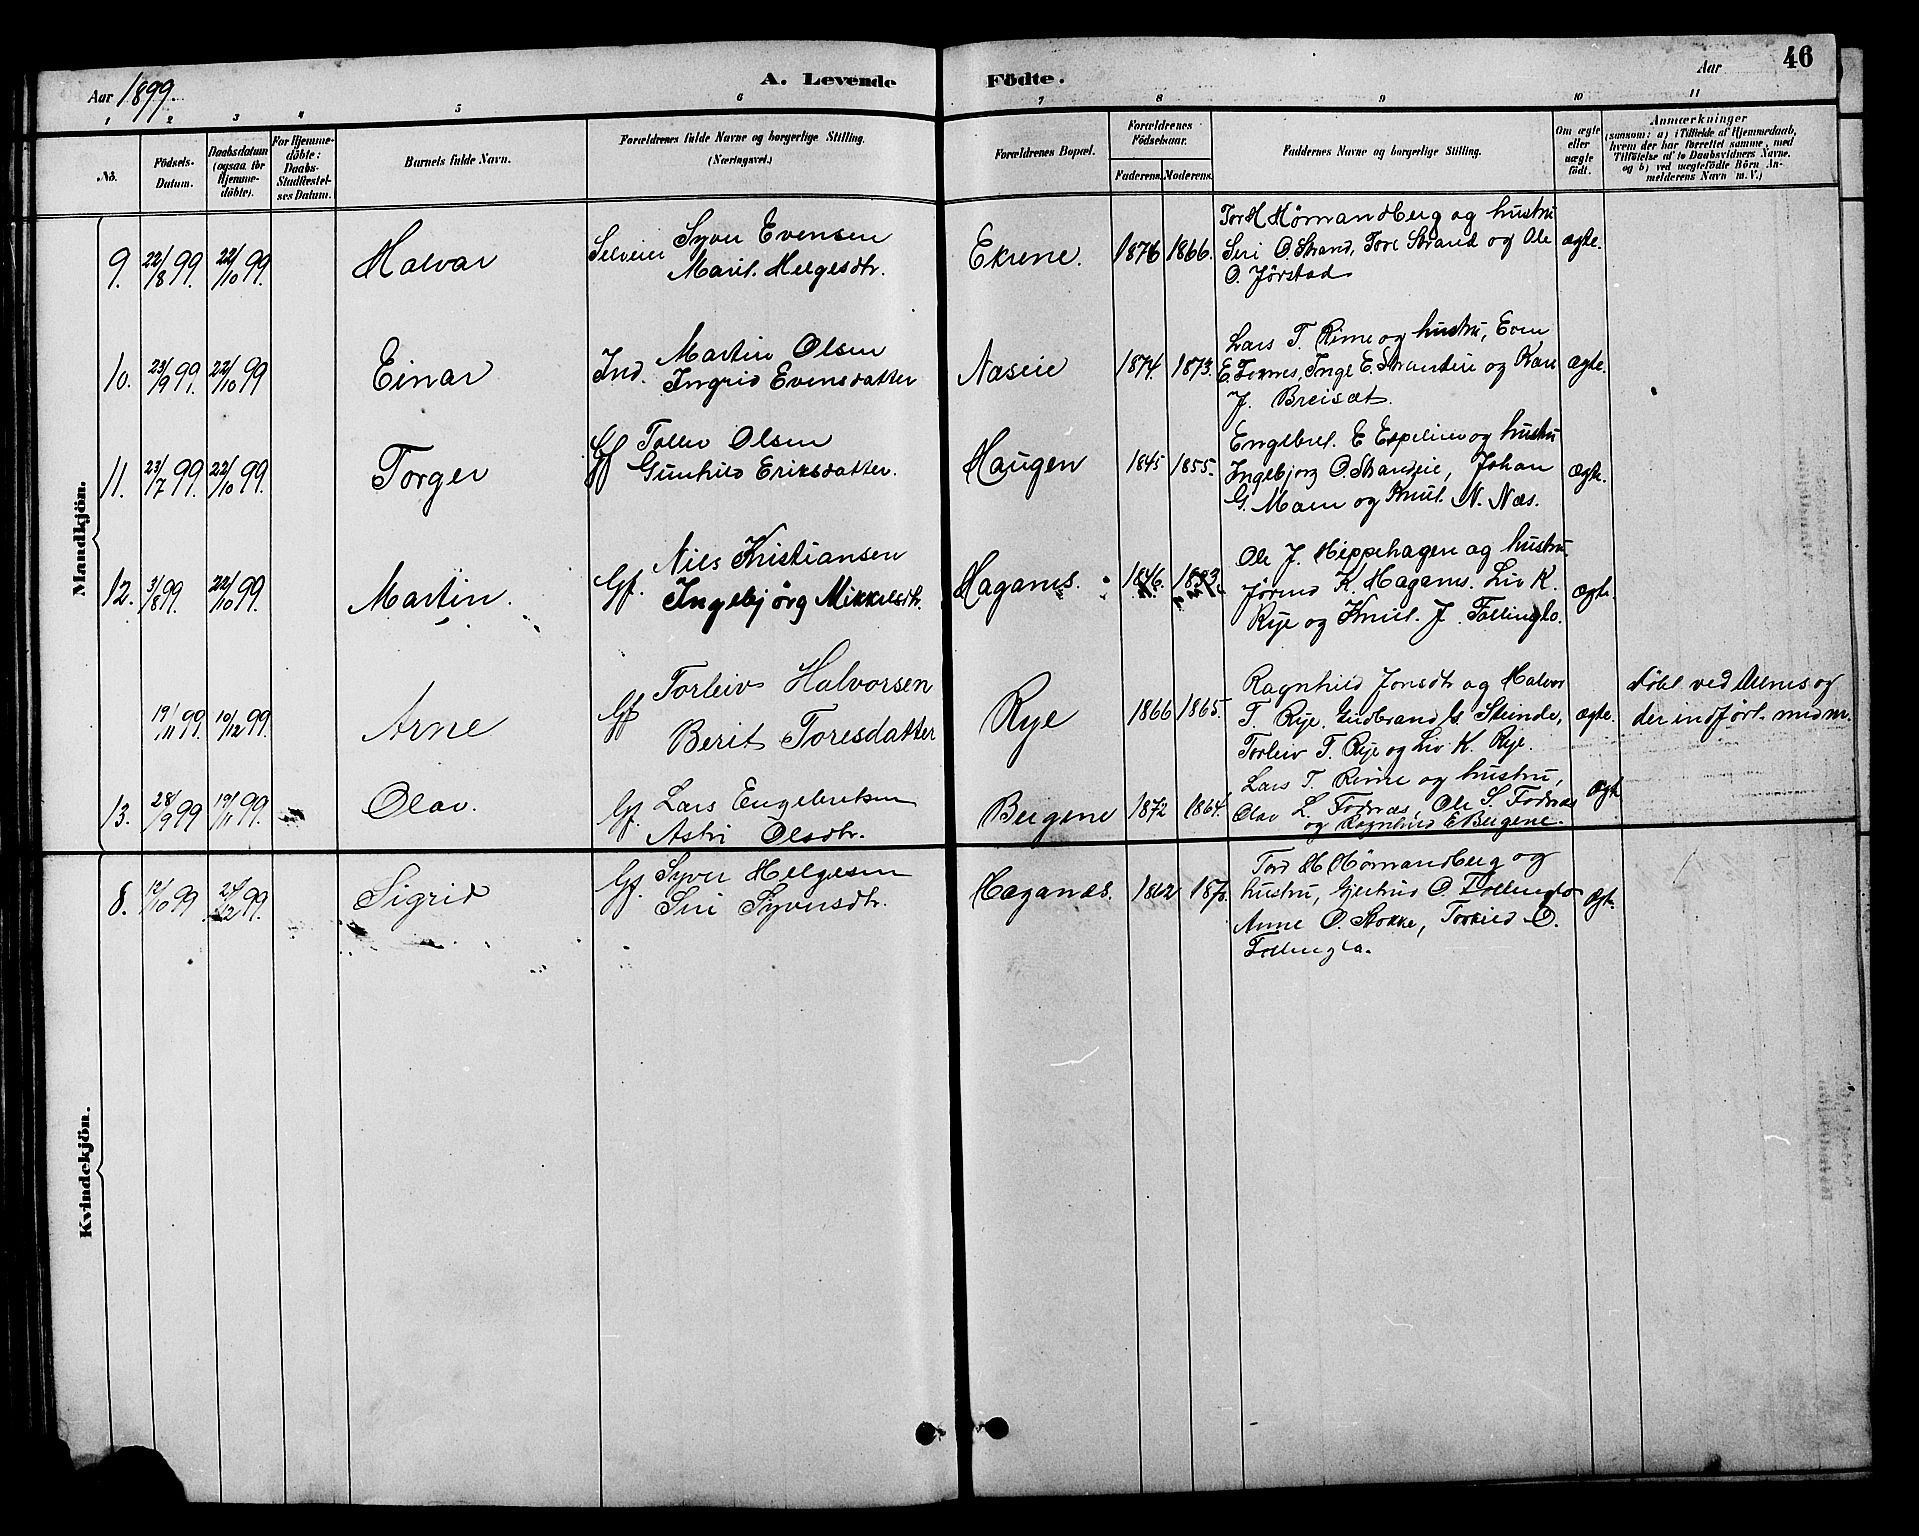 Aar 1899. A. Levende Födte. Aar 46
1 2 3 4 5 6 7 8 9 10 11
No. Födsels-Datum. Daabsdatum (ogsaa for Hjemme-döbte). For Hjemme-döbte: Daabs-Stadfæstel-ses Datum. Barnets fulde Navn. Forældrenes fulde Navne og borgerlige Stilling. (Næringsvei.) Forældrenes Bopæl. Forældrenes Födselsaar. Faderens. Moderens. Faddernes Navne og borgerlige Stilling. Om ægte eller uægte födt. Anmærkninger
(saasom: a) i Tilfælde af Hjemmedaab,
hvem der har forrettet samme, med
Tilföielse af to Daabsvidners Navne,
og b) ved uægtefödte Börn An-
melderens Navn m. V.)
Mandkjön.
9. 22/8 99. 22/10 99. Halvar Selveier Syver Evensen
Marit Helgesdtr. Ekrene. 1876 1866. Tor H Hørnandberg og hustru
Siri O. Strand, Tore Strand og Ole
O. Jørstad ægte.
10. 23/9 99. 22/10 99 Einar Ind. Martin Olsen
Ingrid Evensdatter Næseie 1874. 1873. Lars T. Rime og hustru, Even
E. Fornes, Inge E. Strandeie og Kari
J. Breisæt. ægte.
11. 23/7 99. 22/10 99. Torger Gf Tollev Olsen
Gunhild Eriksdatter. Haugen 1845 1855. Engebret E Espelien og hustru
Ingebjorg O. Strandeie, Johan
G. Moen og Knut N. Næs. ægte.
12. 3/8 99. 22/10 99. Martin. Gf. Nils Kristiansen
Ingebjørg Mikkelsdtr. Haganes. 1846. 1853. Ole J. Heppehagen og hustru
Jørund K. Haganes. Liv K.
Rye og Knut J. Follinglo. ægte
19/11 99. 10/12 99. Arne Gf Torleiv Halvorsen
Berit Toresdatter Rye 1866 1865. Ragnhild Jonsdtr og Halvor
T. Rye, Gudbrand G. Steinde,
Torleiv T. Rye og Liv K. Rye. ægte. Døbt ved Ulnes og
der indført med nr.
13. 28/9 99 19/11 99. Olav. Gf. Lars Engebretsen
Astri Olsdtr. Bergene 1872 1864. Lars T. Rime og hustru,
Olav L. Fodnæs, Ole S. Fodnæs
og Ragnhild E Bergene. ægt
Kvindekjön.
8. 12/10 99 24/12 99. Sigrid Gf. Syver Helgesen
Siri Syversdtr. Haganæs. 1862 1870. Tord H Hørnandberg og
hustru, Gjertrud O. Follinglo
Anne O. Stokke, Torkild O.
Follinglo. ægt.